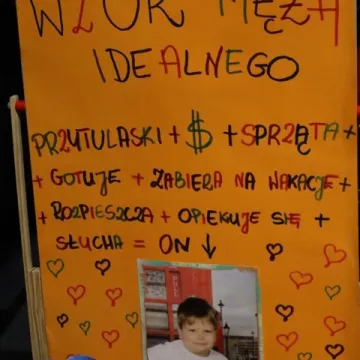 WZÓR MĘŻA
IDEALNEGO
PRZYTULASKI + $ + SPRZĄTA +
+ GOTUJE + ZABIERA NA WAKACJE +
+ ROZPIESZCZA + OPIEKUJE SIĘ +
SŁUCHA = ON ↓